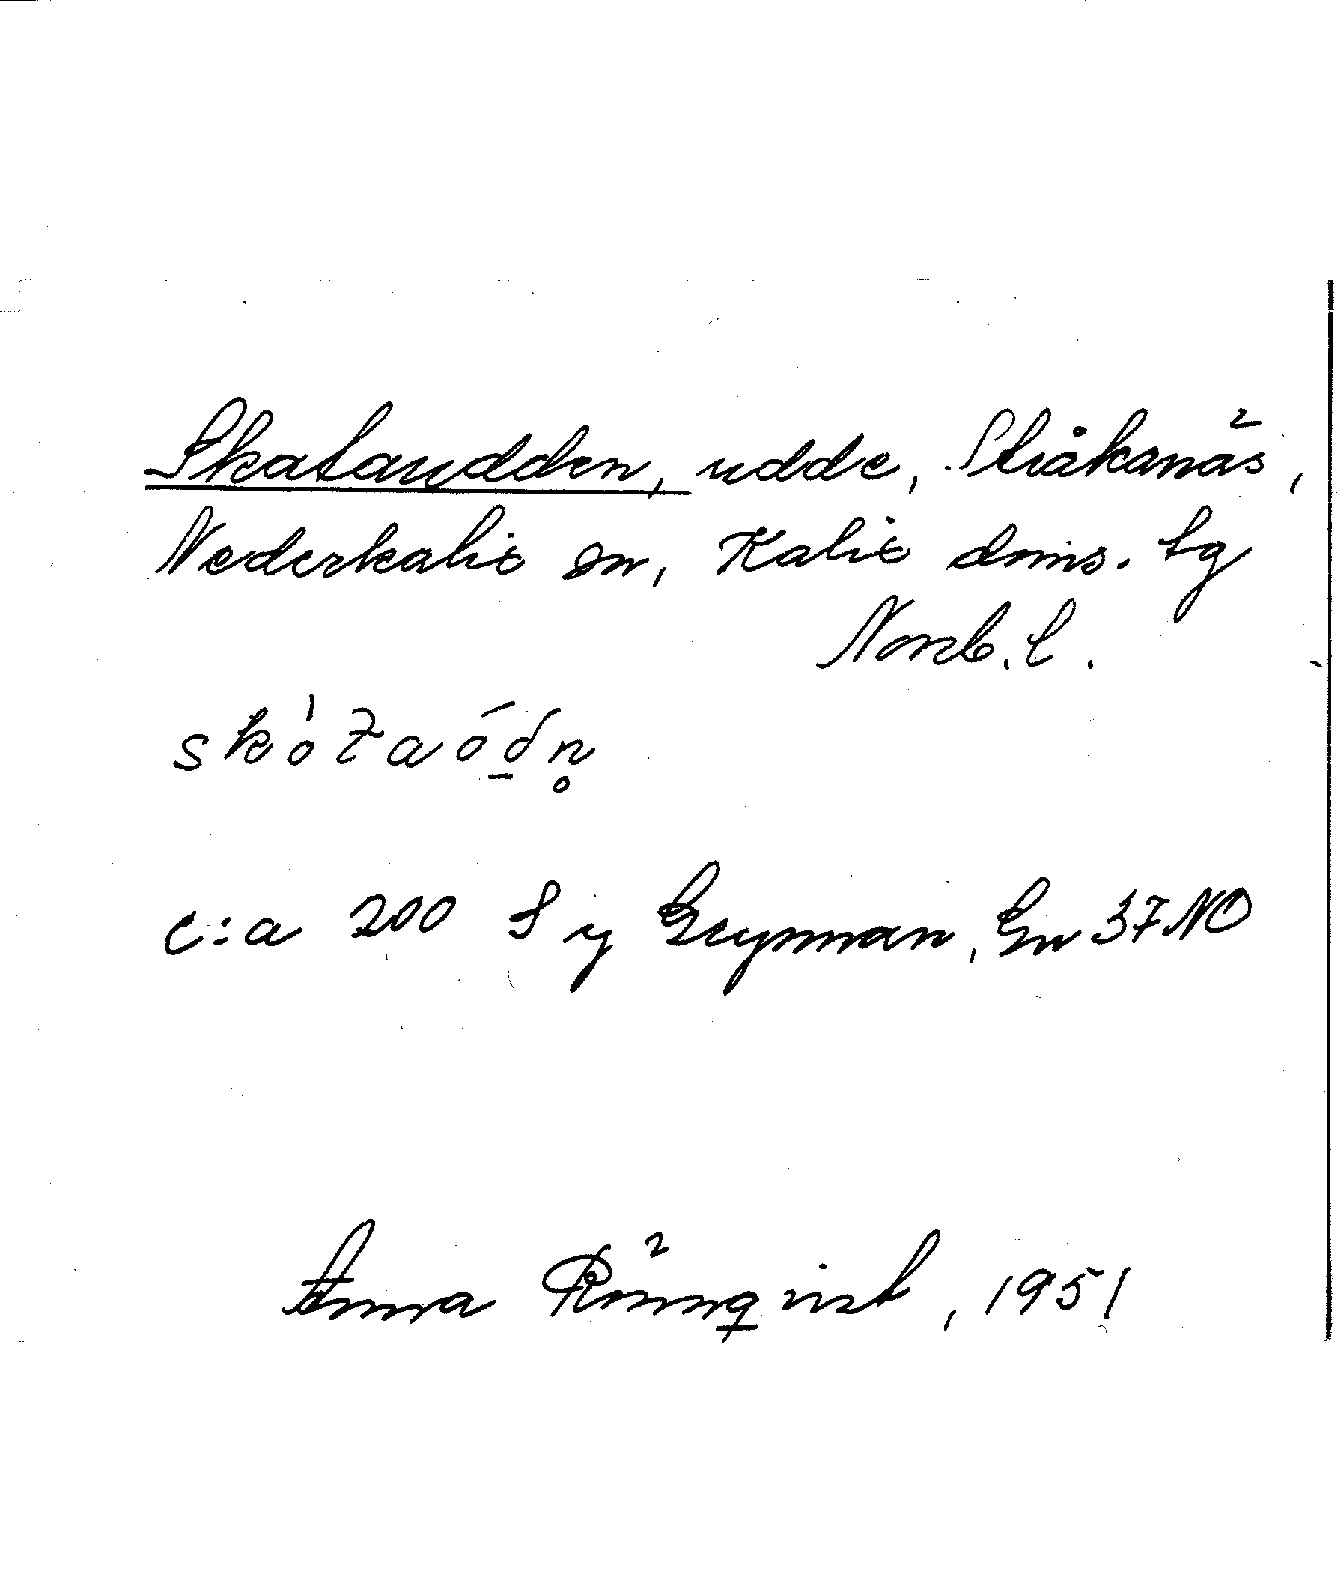 Skataudden, udde, Stråkanäs,
Nederkalix sn, Kalix doms. tg
Norrb. l.
c:a 200 S y Grynnan, Gn 37 NO
Anna Rönnqvist, 1951